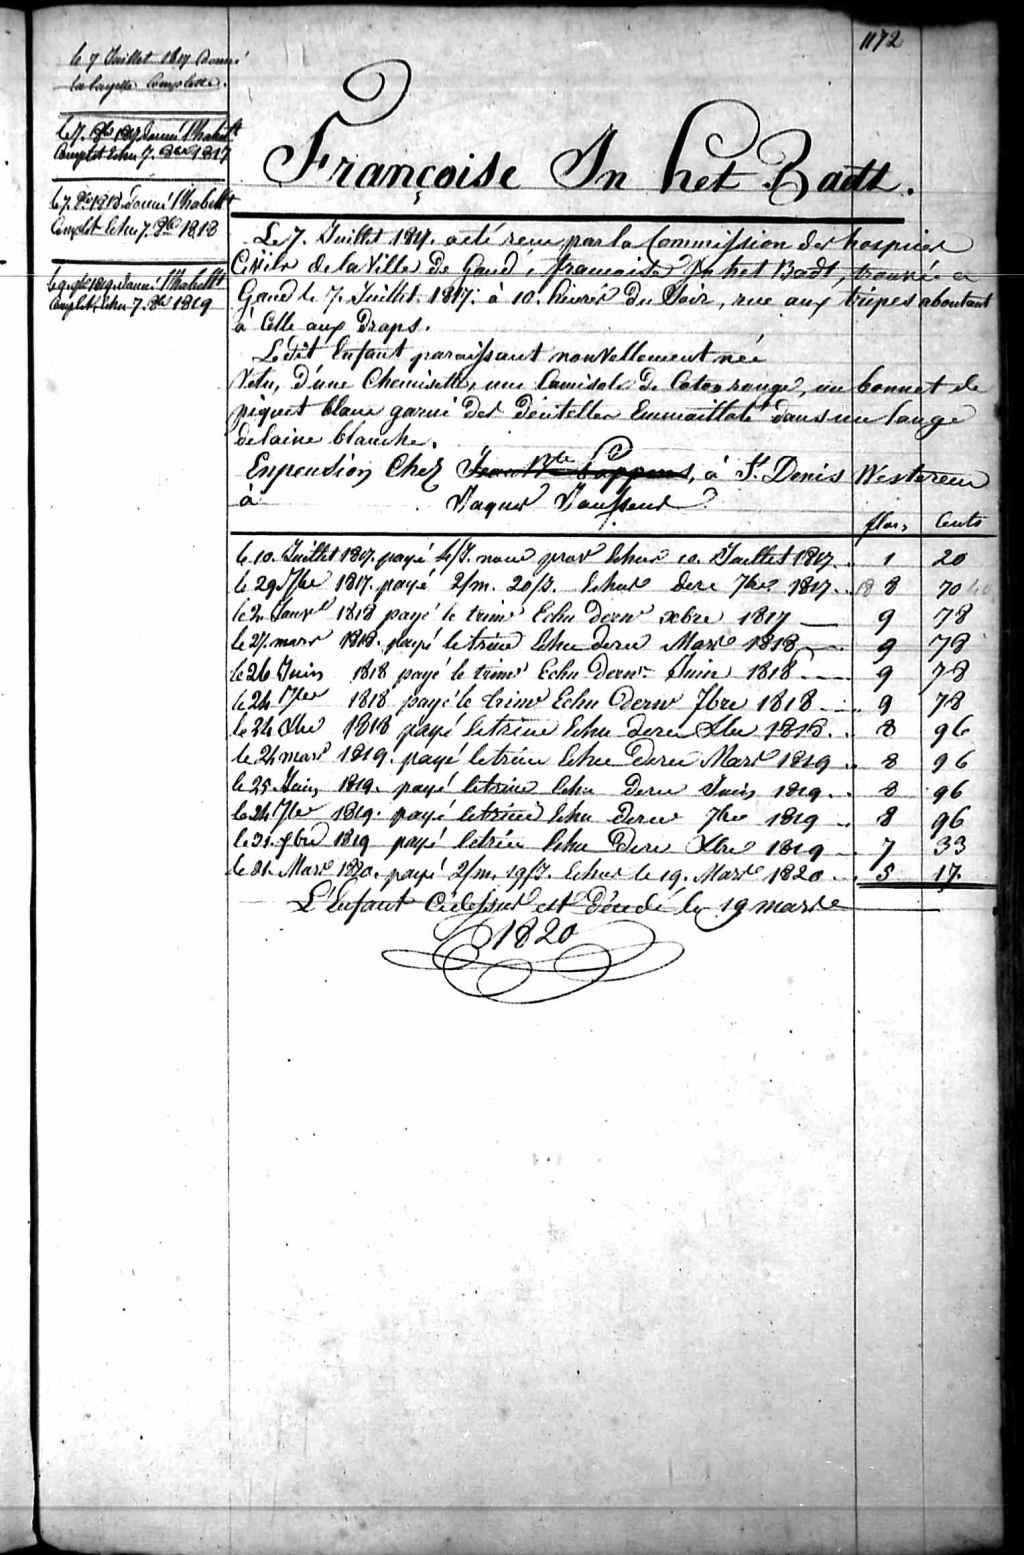 1172
le 7 Juillet 1817 Donné
la layette Complette.
le 7. 8bre 1817 donné l'habillt
Complet Echu 7. 8bre 1817
le 7. 8bre 1818. donné l'habillt
Complet Echu 7. 8bre 1818
le 9. 8bre 1819. donné l'habillt
Complet, Echu 7. 8bre 1819
Françoise In het Badt.
Le 7. Juillet 1817. a été reçue par la Commission des hospices
Civils de la Ville de Gand, francoise In het Badt, trouvée a
Gand le 7. Juillet. 1817. à 10. heures du Soir, rue aux tripes aboutant
à Celle aux Draps.
Ledit Enfant paraissant nouvellement née
Vetu, d'une Chemisette, une Camisole de Coton rouge, un bonnet de
piquet blanc garni des Dentelles Emmailloté dans une lange
de laine blanche.
En pension Chez Coppens, à St. Denis Westerem
à
flor, Cents
le 10. Juillet 1817. payé 4/J. Echus 10. Juillet 1817. 1 20
le 29. 7bre 1817. payé 2/m. 20/J. Echus dere 7bre 1817. 8 70
le 2 Janvr 1818 payé le trimr Echu dernr xbre 1817 9 78
le 27. mars 1818. payé le trimr Echu dernr Mars 1818 9 78
le 26 Juin 1818 payé le trimr Echu dernr Juin 1818 9 78
le 24 7bre 1818 payé le trimr Echu dernr 7bre 1818 9 78
le 24 Xbre 1818 payé le trimr Echu dernr Xbre 1818. 8 96
le 24 mars 1819. payé le trimr Echu dernr Mars 1819 8 96
le 25 Juin 1819. payé le trimr Echu dernr Juin 1819. 8 96
le 24 7bre 1819. payé le trimr Echu dernr 7bre 1819 8 96
le 31. Xbre 1819 payé le trim Echu dere Xbre 1819 7 33
le 31. Mars 1820. payé 2/m. 19/J. Echus le 19. Mars 1820. 5 17
L'Enfant Cidessus est Décédé le 19 mars
1820